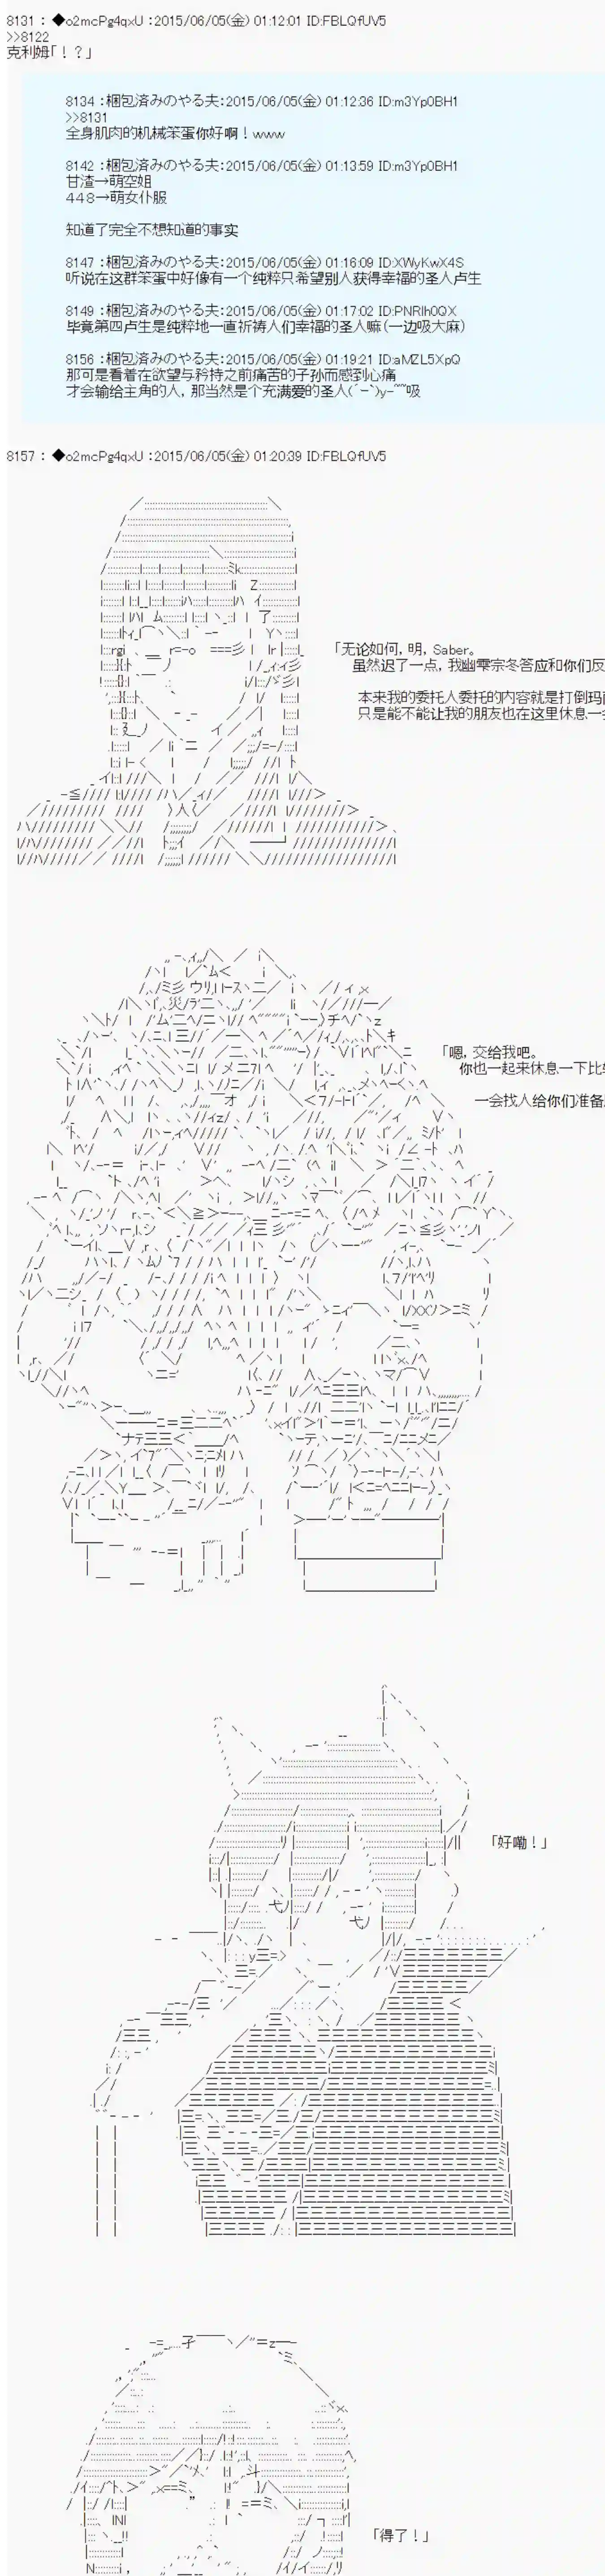 8131 : ◆o2mcPg4qxU : 2015/06/05(金) 01:12:01 ID:FBLQfUV5
>>8122
克利姆「！？」
8134 : 梱包済みのやる夫 : 2015/06/05(金) 01:12:36 ID:m3Yp0BH1
>>8131
全身肌肉的机械笨蛋你好啊！www
8142 : 梱包済みのやる夫 : 2015/06/05(金) 01:13:59 ID:m3Yp0BH1
甘渣→萌空姐
448→萌女仆服
知道了完全不想知道的事实
8147 : 梱包済みのやる夫 : 2015/06/05(金) 01:16:09 ID:XWyKwX4S
听说在这群笨蛋中好像有一个纯粹只希望别人获得幸福的圣人卢生
8149 : 梱包済みのやる夫 : 2015/06/05(金) 01:17:02 ID:PNRlh0QX
毕竟第四卢生是纯粹地一直祈祷人们幸福的圣人嘛（一边吸大麻）
8156 : 梱包済みのやる夫 : 2015/06/05(金) 01:19:21 ID:aMZL5XpQ
那可是看着在欲望与矜持之前痛苦的子孙而感到心痛
才会输给主角的人，那当然是个充满爱的圣人(´ｰ`)y-~~吸
8157 : ◆o2mcPg4qxU : 2015/06/05(金) 01:20:39 ID:FBLQfUV5
「无论如何，明，Saber。
虽然迟了一点，我幽雫宗冬答应和你们反
本来我的委托人委托的内容就是打倒玛
只是能不能让我的朋友也在这里休息一
「嗯，交给我吧。
你也一起来休息一下比
一会找人给你们准备
「好嘞！」
「得了！」